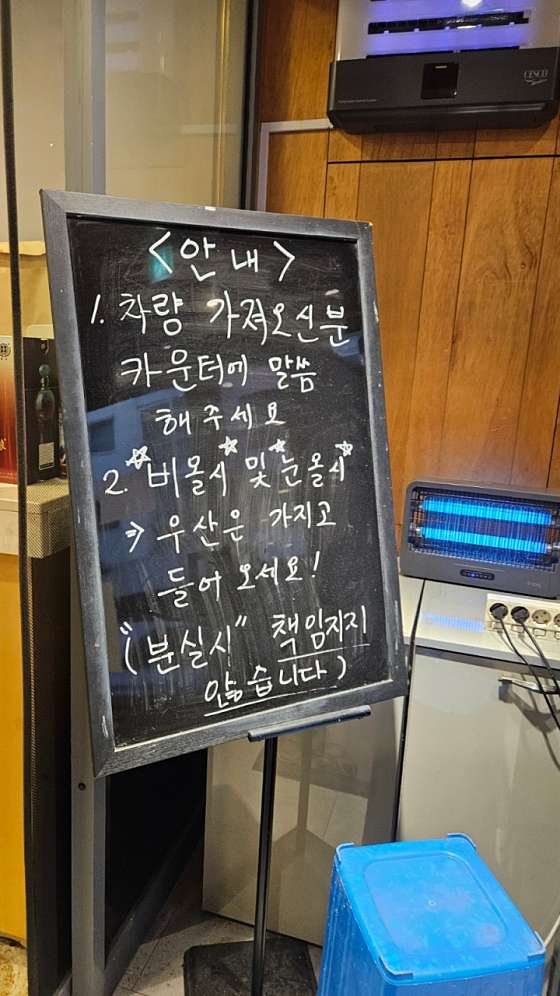 CESCO
<안내>
1. 차량 가져오신분
카운터에 말씀
해주세요
2. "비올시 및 눈올시"
⇒ 우산은 가지고
들어 오세요!
("분실시" 책임지지
않습니다)